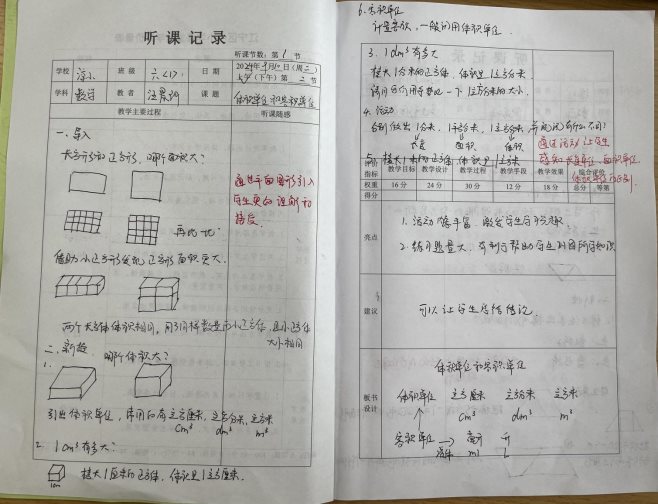 听课记录
听课节数：第1节
学校 班级 六(1) 日期 2024年9月10日(周二)
(下午)第2节
学科 数学 教者 课题 体积单位和容积单位
教学主要过程 听课随感
一、导入
长方形和正方形，哪个面积大？
通过平面图形引入
学生更易理解和
接受。
再比一比
借助小正方形发现正方形面积更大。
两个长方体体积相同，用了同样数量的小正方体，且小正方体
大小相同
二、新授 哪个体积大？
1.
引出体积单位，常用的有立方厘米，立方分米，立方米
cm³ dm³ m³
2. 1cm³有多大？
1cm 棱长1厘米的正方体，体积是1立方厘米。
6. 容积单位
计量容积，一般的用体积单位
3. 1dm³有多大
棱长1分米的正方体，体积是1立方分米。
请同学们用手势比一下1立方分米的大小。
4. 活动
分别做出1分米，1平方分米，1立方分米，并说说有什么不同？
长度 面积 体积
通过活动让学生
感知长度单位、面积单位
体积单位的区别
5. 棱长1米的正方体，体积是1立方米
指标 教学目标 教学设计 教学过程 教学手段 教学效果 综合评价
权重 16分 24分 30分 12分 18分 总分 等第
得分
亮点
1. 活动丰富，激发学生学习兴趣
2. 练习题量大，有利于帮助学生巩固所学知识
建议
可以让学生总结结论
板书设计
体积单位和容积单位
体积单位 立方厘米 立方分米 立方米
cm³ dm³ m³
容积单位 → 毫升 升
液体 ml L